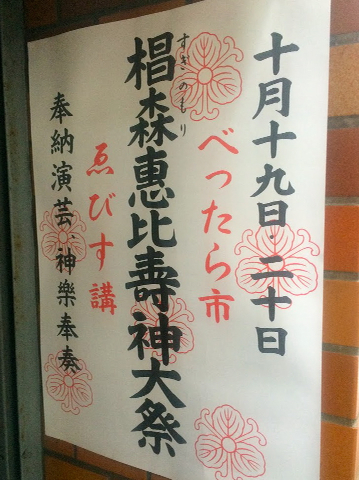 十月十九日・二十日
べったら市
すぎのもり
椙森惠比壽神大祭
ゑびす講
奉納演芸、神樂奉奏